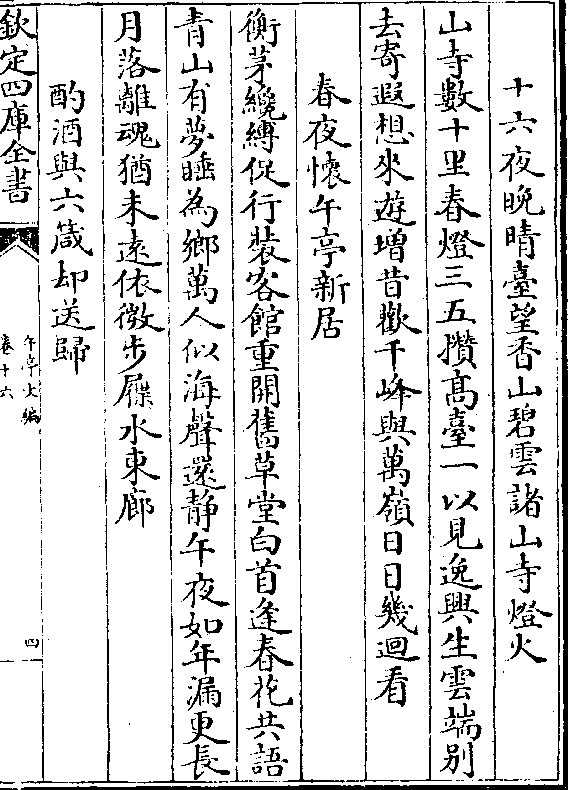 十六夜晚晴臺望香山碧雲諸山寺燈火
山寺數十里春燈三五攢髙臺一以見逸興生雲端别
去寄遐想來遊增昔歡千峰與萬嶺日日幾迴看
春夜懷午亭新居
衡茅纔縛促行裝客館重開舊草堂白首逢春花共語
青山有夢睡為鄉萬人似海聲還静午夜如年漏更長
月落離魂猶未遠依微步屧水東廊
酌酒與六箴却送歸
欽定四庫全書
午亭文編
卷十六
四